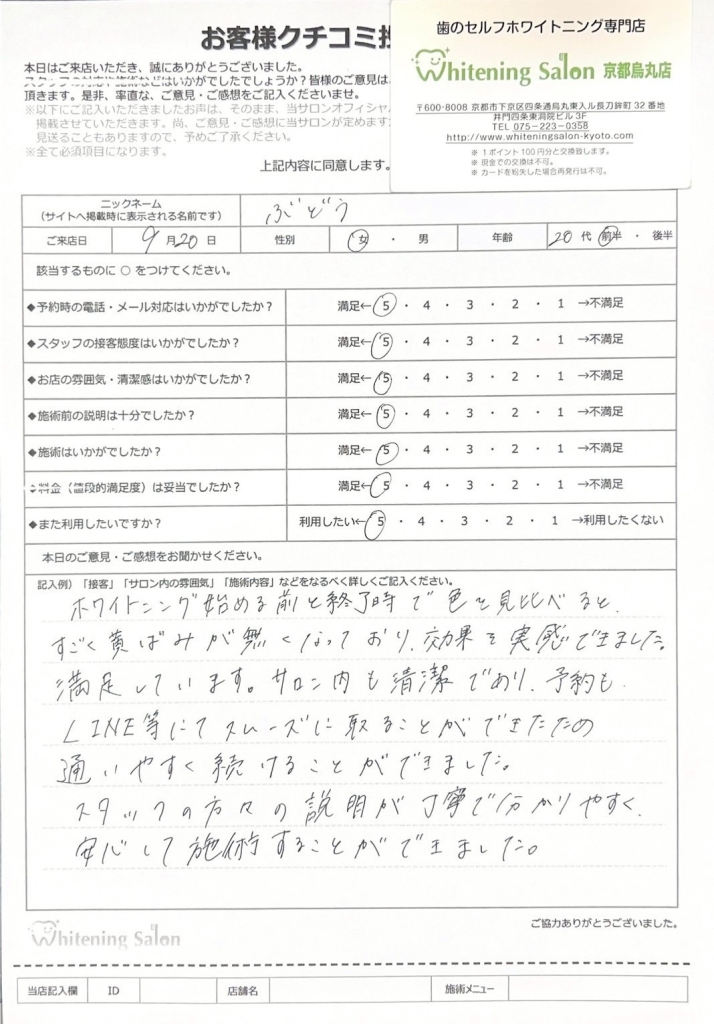 お客様クチコミ
本日はご来店いただき、誠にありがとうございました。
スタッフの対応や施術などはいかがでしたでしょうか？皆様のご意見は、
頂きます。是非、率直な、ご意見・ご感想をご記入くださいませ。
※以下にご記入いただきましたお声は、そのまま、当サロンオフィシャ
掲載させていただきます。尚、ご意見・ご感想に当サロンが定めます
見送ることもありますので、予めご了承ください。
※全て必須項目になります。
上記内容に同意します。
歯のセルフホワイトニング専門店
Whitening Salon 京都烏丸店
〒600-8008 京都市下京区四条通烏丸東入ル長刀鉾町 32 番地
井門四条東洞院ビル3F
TEL 075-223-0358
http://www.whiteningsalon-kyoto.com
※ 1ポイント100円分と交換致します。
※ 現金での交換は不可。
※ カードを紛失した場合再発行は不可。
ニックネーム
（サイトへ掲載時に表示される名前です）
ぶどう
ご来店日 9月20日 性別 女・男 年齢 20代 前半・後半
該当するものに ○ をつけてください。
◆予約時の電話・メール対応はいかがでしたか？ 満足←5・4・3・2・1→不満足
◆スタッフの接客態度はいかがでしたか？ 満足←5・4・3・2・1→不満足
◆お店の雰囲気・清潔感はいかがでしたか？ 満足←5・4・3・2・1→不満足
◆施術前の説明は十分でしたか？ 満足←5・4・3・2・1→不満足
◆施術はいかがでしたか？ 満足←5・4・3・2・1→不満足
◆料金（値段的満足度）は妥当でしたか？ 満足←5・4・3・2・1→不満足
◆また利用したいですか？ 利用したい←5・4・3・2・1→利用したくない
本日のご意見・ご感想をお聞かせください。
記入例）「接客」「サロン内の雰囲気」「施術内容」などをなるべく詳しくご記入ください。
ホワイトニング始める前と終了時で色を見比べると、
すごく黄ばみが無くなっており、効果を実感できました。
満足しています。サロン内も清潔であり、予約も
LINE等にてスムーズに取ることができたため
通いやすく続けることができました。
スタッフの方々の説明が丁寧で分かりやすく、
安心して施術することができました。
ご協力ありがとうございました。
Whitening Salon
当店記入欄 ID 店舗名 施術メニュー